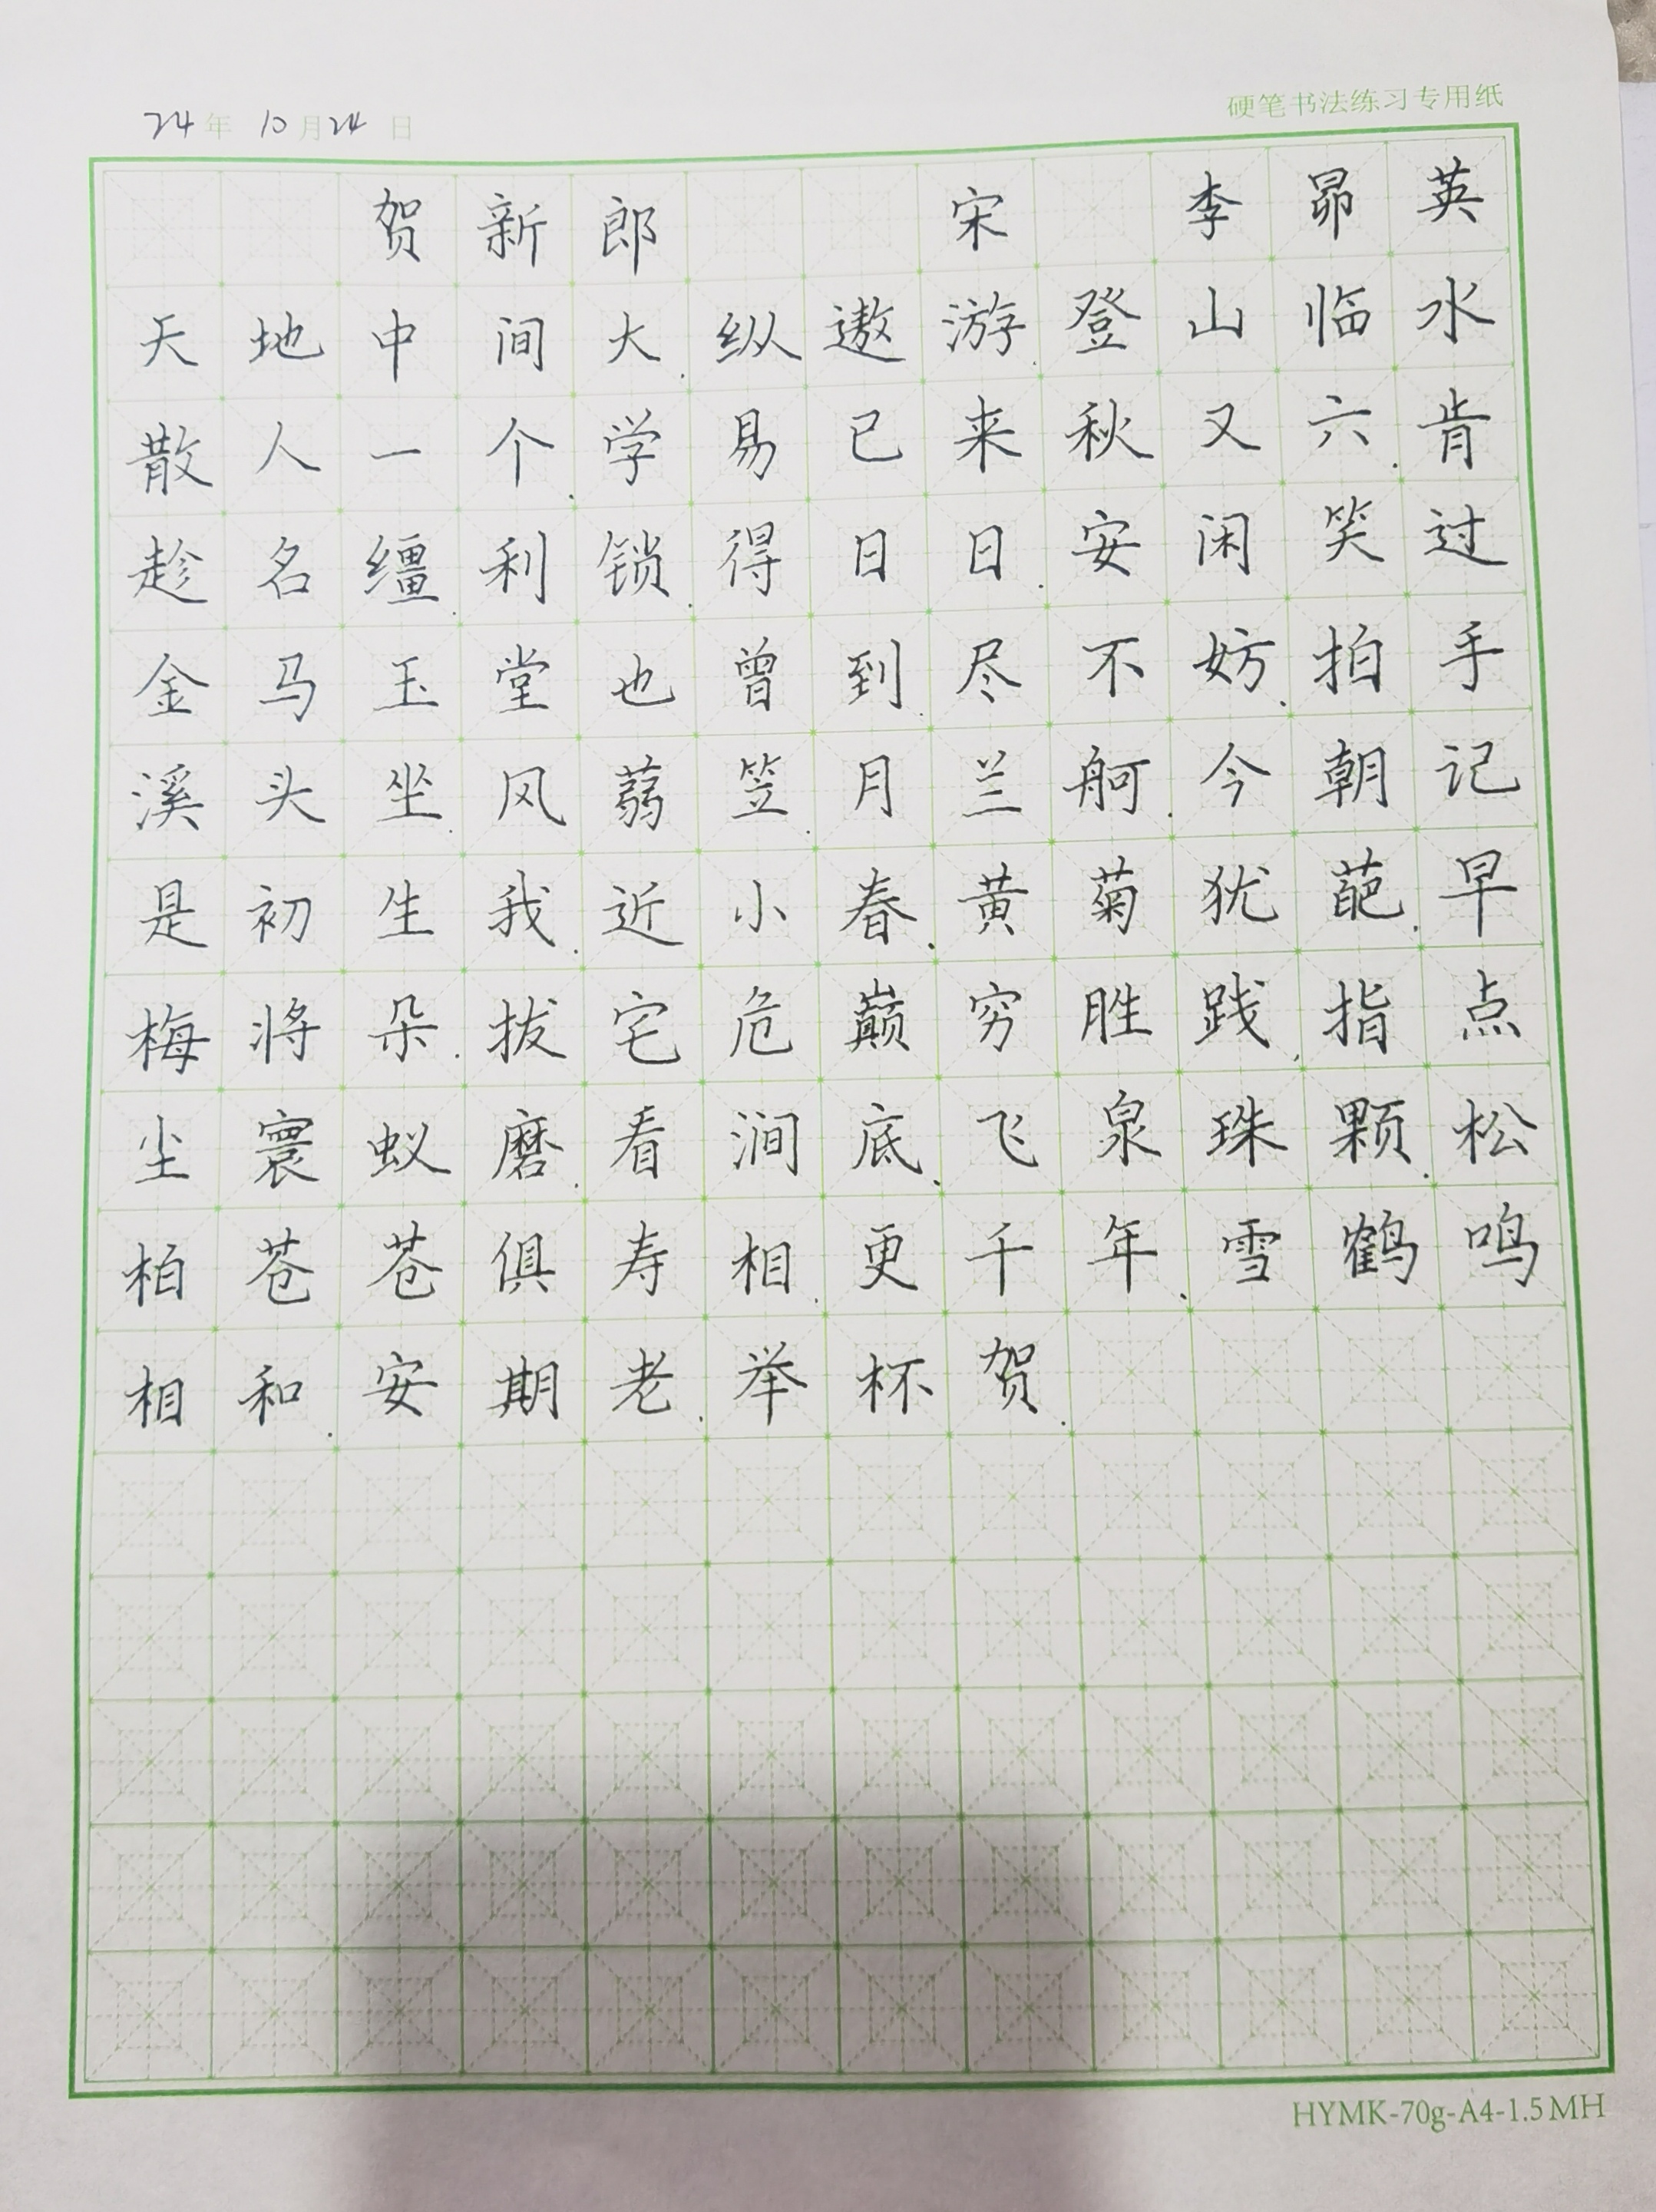 硬笔书法练习专用纸
24年10月24日
贺新郎 宋 李昴英
天地中间大.纵遨游.登山临水
散人一个.学易已来秋又六.肯
趁名缰.利锁.得日日.安闲笑过
金马玉堂也曾到.尽不妨.拍手
溪头坐.风蒻笠.月兰舸.今朝记
是初生我.近小春.黄菊犹葩.早
梅将朵.拔宅危巅穷胜践.指点
尘寰蚁磨.看涧底.飞泉珠颗.松
柏苍苍俱寿相.更千年.雪鹤鸣
相和.安期老.举杯贺.
HYMK-70g-A4-1.5MH